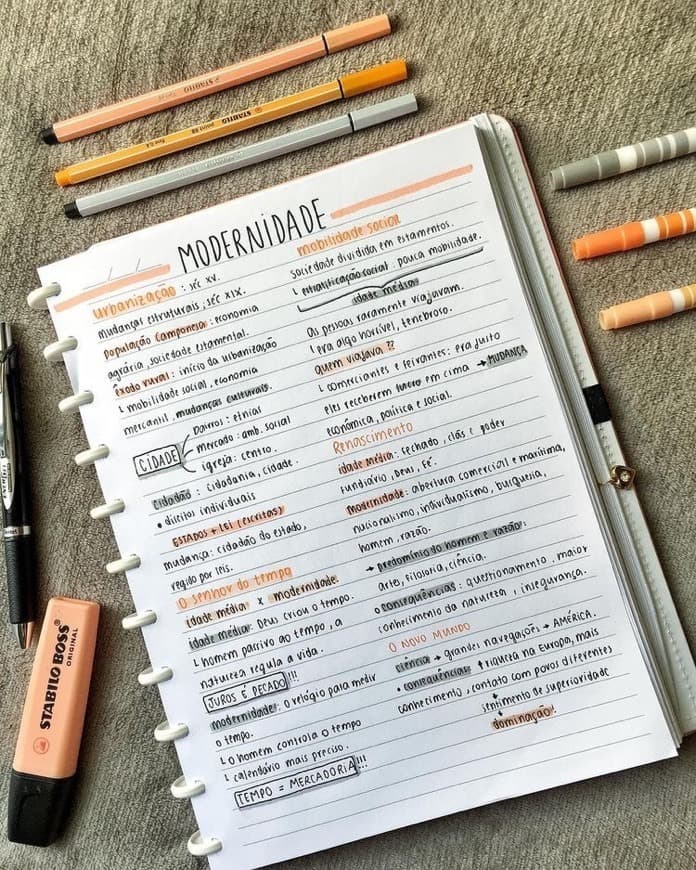 STABILO
STABILO point 88 fine 0,4
STABILO
MODERNIDADE
urbanização: séc XV.
mudanças estruturais, séc XIX.
População Camponesa: economia
agrária, sociedade estamental.
êxodo rural: início da urbanização
└ mobilidade social, economia
mercantil, mudanças culturais.
CIDADE
bairros: etnias
mercado: amb. social
igreja: centro.
Cidadão: cidadania, cidade.
• direitos individuais
ESTADOS + LEI (escritas)
mudança: cidadão do estado,
regido por leis.
O senhor do tempo
idade média x modernidade.
idade média: Deus criou o tempo.
└ homem passivo ao tempo, a
natureza regula a vida.
JUROS É PECADO!!!
modernidade: o relógio para medir
o tempo.
└ o homem controla o tempo
└ calendário mais preciso.
TEMPO = MERCADORIA!!!
mobilidade social
sociedade dividida em estamentos.
└ estratificação social. pouca mobilidade.
idade média
As pessoas raramente viajavam.
└ era algo horrível, tenebroso.
Quem viajava??
└ comerciantes e feirantes: era justo
eles receberem lucro em cima → MUDANÇA
econômica, política e social.
Renascimento
idade média: fechado, clãs e poder
fundiário, Deus, fé.
Modernidade: abertura comercial e marítima,
nacionalismo, individualismo, burguesia,
homem, razão.
→ predomínio do homem e razão:
arte, filosofia, ciência.
o consequências: questionamento. maior
conhecimento da natureza, insegurança.
O NOVO MUNDO
ciência → grandes navegações → AMÉRICA.
• consequências: ↑ riqueza na Europa, mais
conhecimento, contato com povos diferentes
↳ sentimento de superioridade
dominação!
STABILO BOSS
ORIGINAL